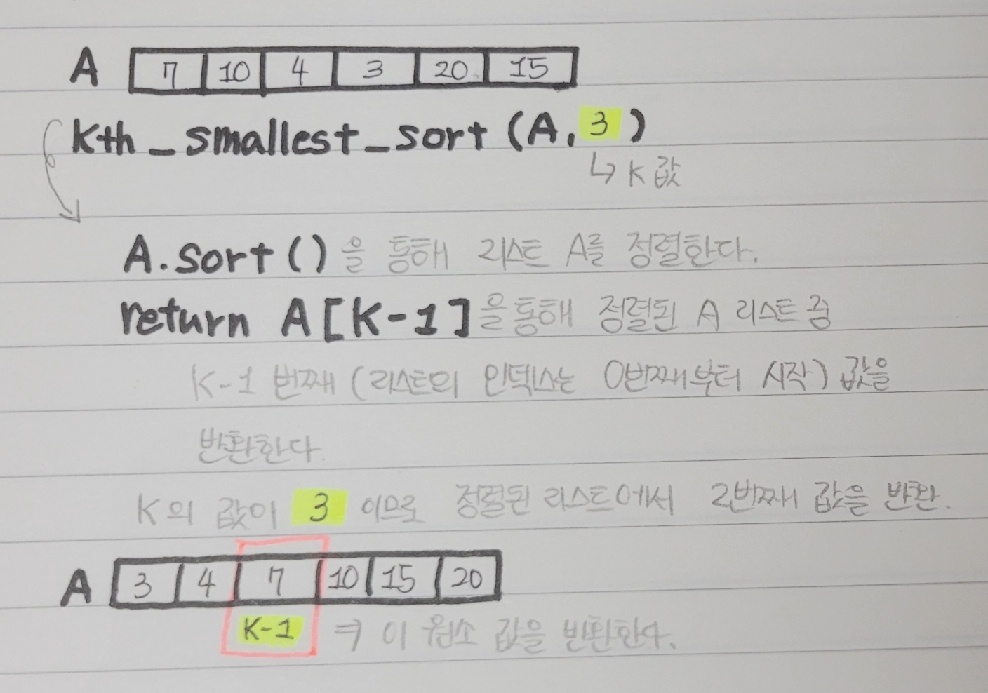 A 7 10 4 3 20 15
Kth_smallest_sort (A, 3)
↳ K 값
A.sort()을 통해 리스트 A를 정렬한다.
return A[K-1]을 통해 정렬된 A 리스트 중
K-1 번째 (리스트의 인덱스는 0번째부터 시작) 값을
반환한다.
K의 값이 3 이므로 정렬된 리스트에서 2번째 값을 반환.
A 3 4 7 10 15 20
K-1 ⇒ 이 원소 값을 반환한다.